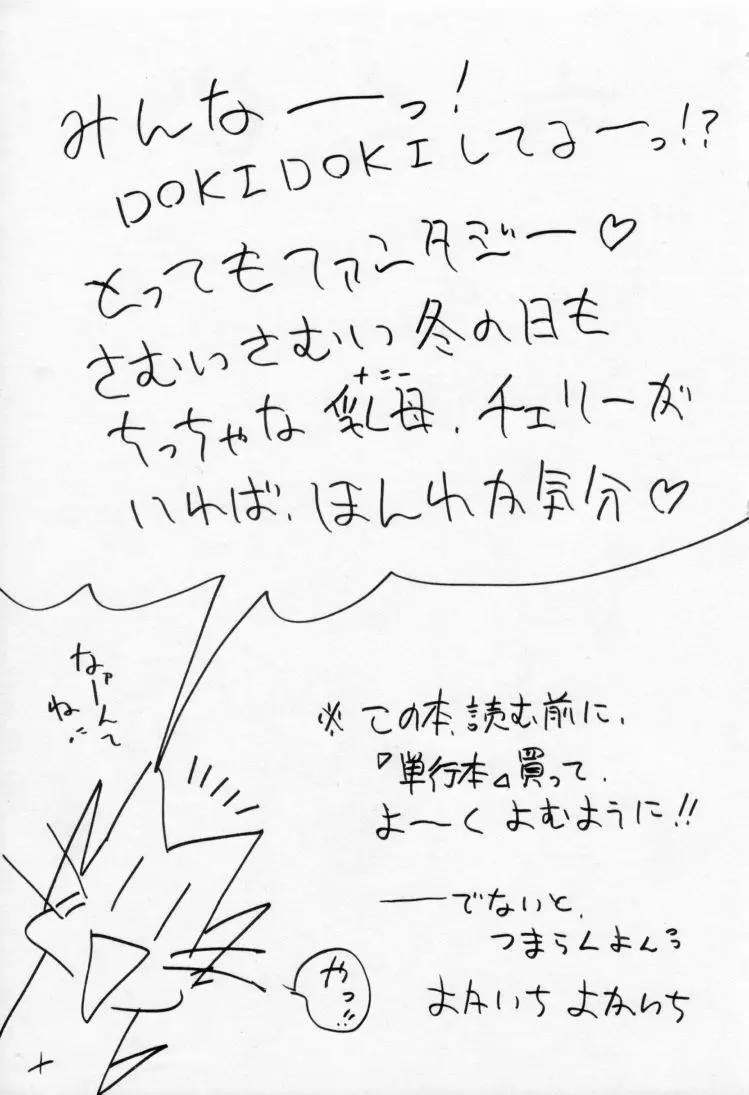 みんなーっ!
DOKIDOKIしてるーっ!?
とってもファンタジー♡
さむいさむい冬の日も
ちっちゃな乳母、チェリーが
ナニー
いれば、ほんわか気分♡
なァーんて
ね!!
※この本、読む前に、
『単行本』買って、
よ〜くよむように!!
──でないと、
つまらんよんっ
よかいち よかいち
やっ!!